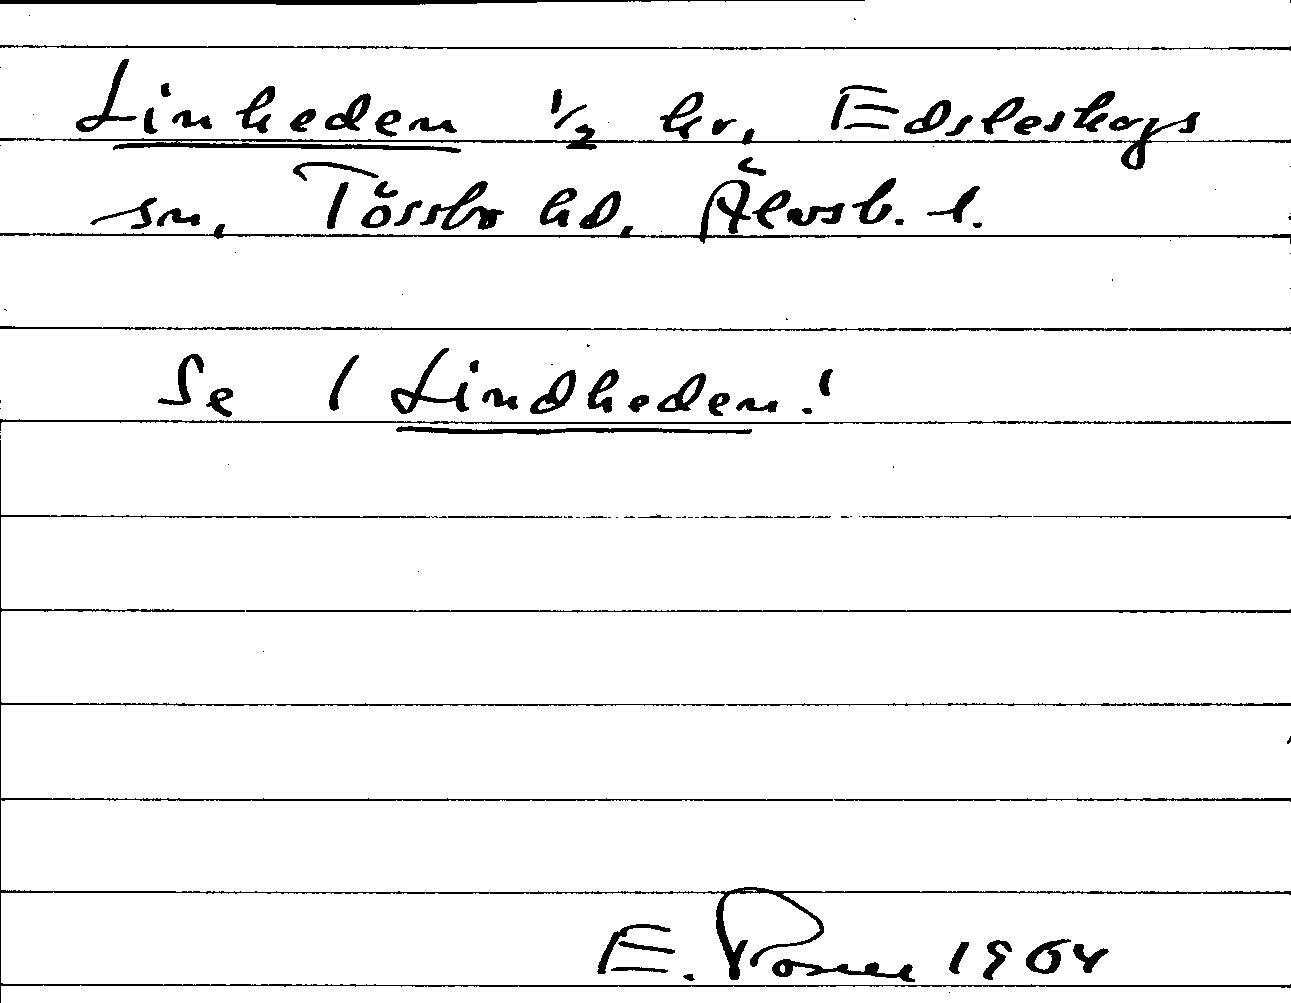 Linheden 1/2 hr, Edsleskogs
sn, Tössbo hd, Älvsb. l.
Se 1 Lindheden!
E. 1964